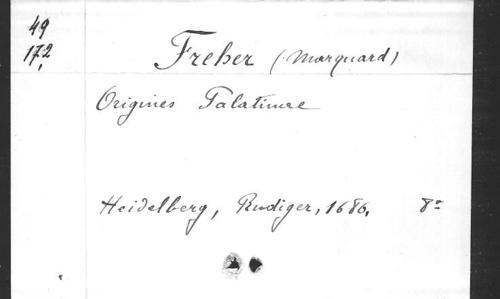 49
172,
Freher (Marquard)
Origines Palatinae
Heidelberg, Rudiger, 1686, 8º